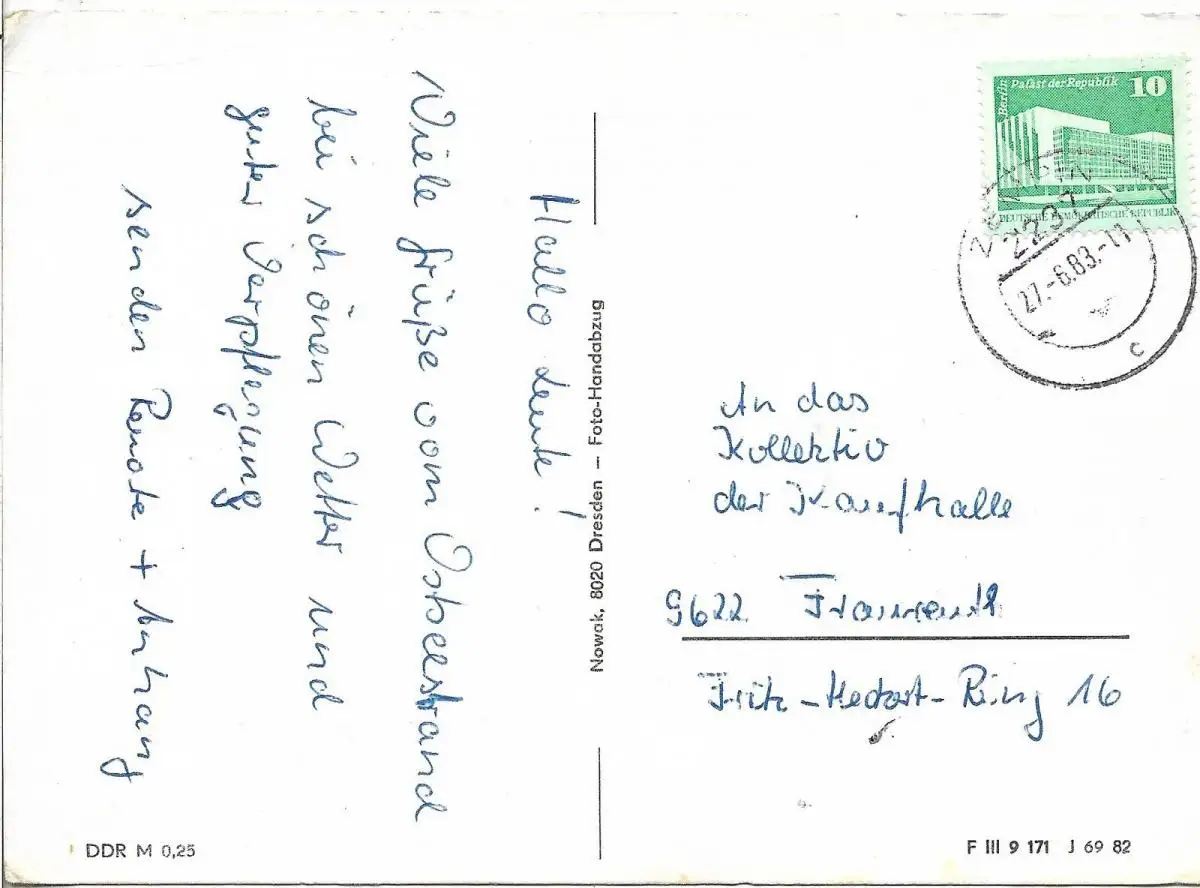 Hallo Leute!
Viele Grüße vom Ostseestrand
bei schönen Wetter und
guter Verpflegung
senden Renate + Anhang
Nowak, 8020 Dresden – Foto-Handabzug
DDR M 0,25
Berlin Palast der Republik 10
DEUTSCHE DEMOKRATISCHE REPUBLIK
2231
27.-6.83.-11
c
An das
Kollektiv
der Kaufhalle
9622
Fritz-Heckert-Ring 16
F III 9 171 J 69 82